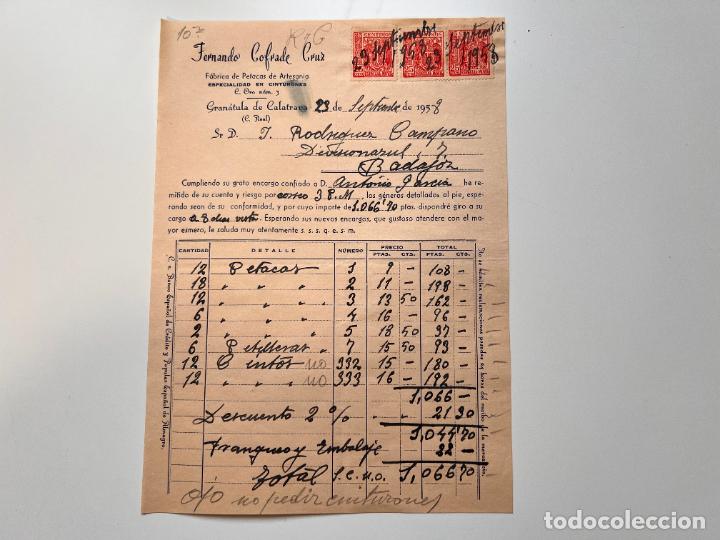 10-7
Fernando Cofrade Cruz
Fábrica de Petacas de Artesanía
ESPECIALIDAD EN CINTURONES
C. Oro núm. 3
23 septiembre 1958
23 septbre 1958
Granátula de Calatrava 23 de Septbre de 1958
(C. Real)
Sr D. J. Rodriguez Campano
Divisionazul, 7
Badajoz
Cumpliendo su grato encargo confiado a D. Antonio Garcia, he re-
mitido de su cuenta y riesgo por correo 3 P.M, los géneros detallados al pie, espe-
rando sean de su conformidad, y por cuyo importe de 1,066'70 ptas. dispondré giro a su
cargo a 8 dias vista. Esperando sus nuevos encargos, que gustoso atendere con el ma-
yor esmero, le saluda muy atentamente s. s. s. q. e. s. m.
CANTIDAD DETALLE NÚMERO PRECIO TOTAL
PTAS. CTS. PTAS. CTS.
12 Petacas 1 9 — 108 —
18 " " 2 11 — 198 —
12 " " 3 13 50 162 —
6 " " 4 16 — 96 —
2 " " 5 18 50 37 —
6 Petilleras 7 15 50 93 —
12 Cintos no 332 15 — 180 —
12 " " no 333 16 — 192 —
1,066 —
Descuento 2 % " " 21 30
1,044'70
Franqueo y Embalaje 22 —
Total S.E.U.O. 1,066 70
ojo no pedir cinturones
C. c. Banco Español de Crédito y Popular Español de Almagro.
todocoleccion